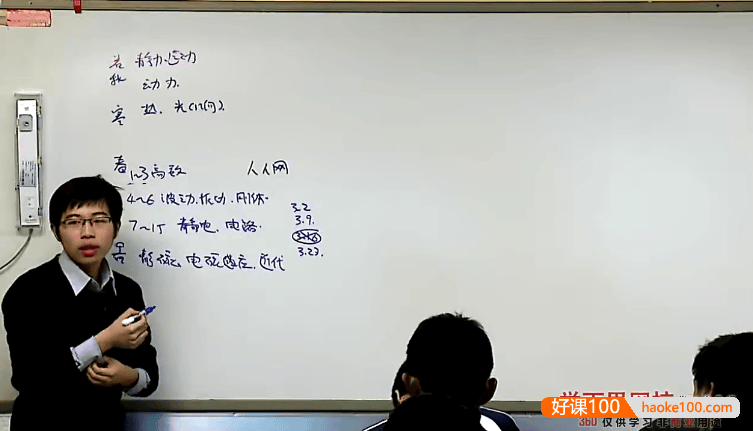 暑 静力.运动
秋 动力.
寒 热.光(几何).
春 1~3 高数
人人网
4~6 波动.振动.刚体.
3.2
3.9.
7~15 静电.电路.
3.23.
静磁.电磁感应.近代
学而思网校
好课100 haoke100.com
360 仅供学习非商业用途